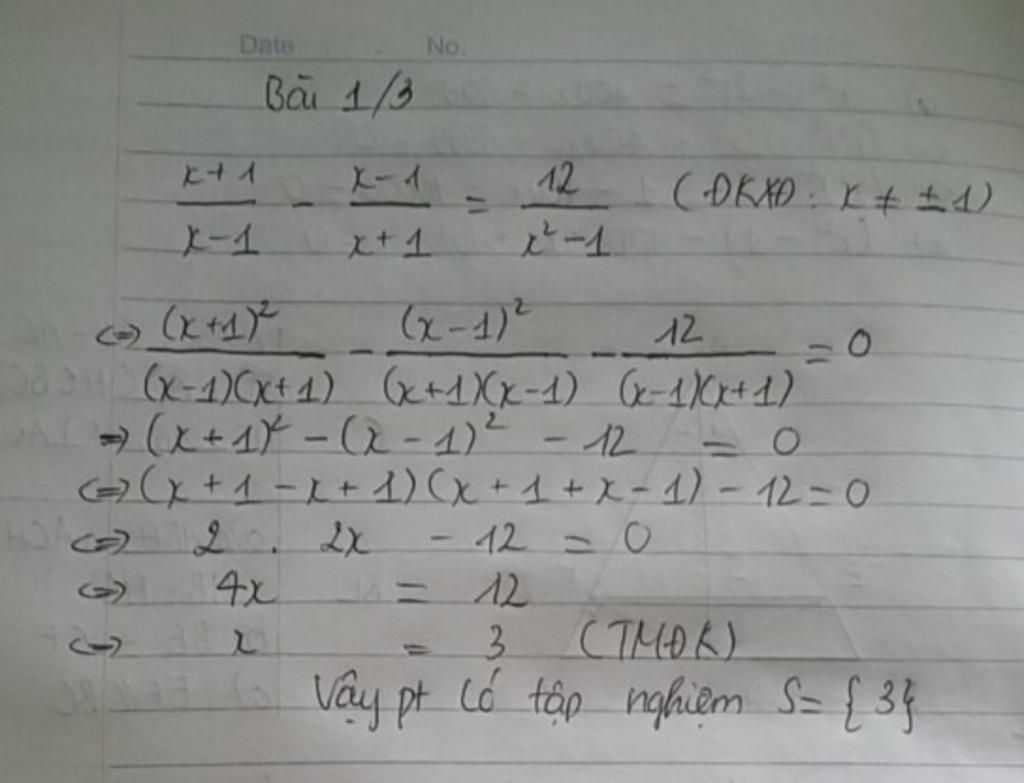 Date No.
Bài 1/3
x+1/x-1 - x-1/x+1 = 12/x²-1 (ĐKXĐ: x ≠ ±1)
<=> (x+1)²/(x-1)(x+1) - (x-1)²/(x+1)(x-1) - 12/(x-1)(x+1) = 0
=> (x+1)² - (x-1)² - 12 = 0
<=> (x+1-x+1)(x+1+x-1) - 12 = 0
<=> 2 . 2x - 12 = 0
<=> 4x = 12
<=> x = 3 (TMĐK)
Vậy pt có tập nghiệm S= {3}